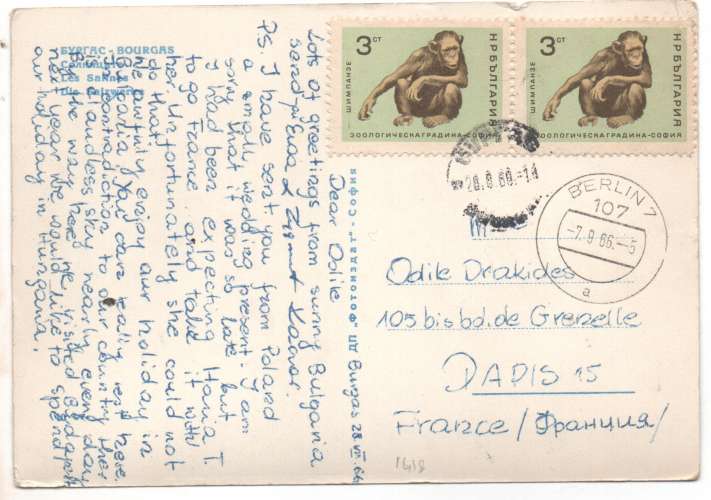 БУРГАС - BOURGAS
Les Salines
Burgas 28 VIII 66
Dear Odile
Lots of greetings from sunny Bulgaria
send
PS. I have sent you from Poland
a small wedding present. I am
sorry that it was so late but
I had been expecting Hania T.
to go France and take it with
her. Unfortunately she could not
do that.
We awfully enjoy our holiday in
Bulgaria
in contradiction to our country there
is cloudless sky nearly every day
By the way here we visited Budapest
next year we would like to spend
our holiday in Hungaria.
"ФОТОИЗДАТ" - СОФИЯ
3 СТ
ШИМПАНЗЕ
НРБЪЛГАРИЯ
ЗООЛОГИЧЕСКА ГРАДИНА - СОФИЯ
3 СТ
ШИМПАНЗЕ
НРБЪЛГАРИЯ
ЗООЛОГИЧЕСКА ГРАДИНА - СОФИЯ
BERLIN 7
107
-7.9.66.-5
a
Odile Drakides
105 bis bd. de Grenelle
PARIS 15
France / Франция /
1418